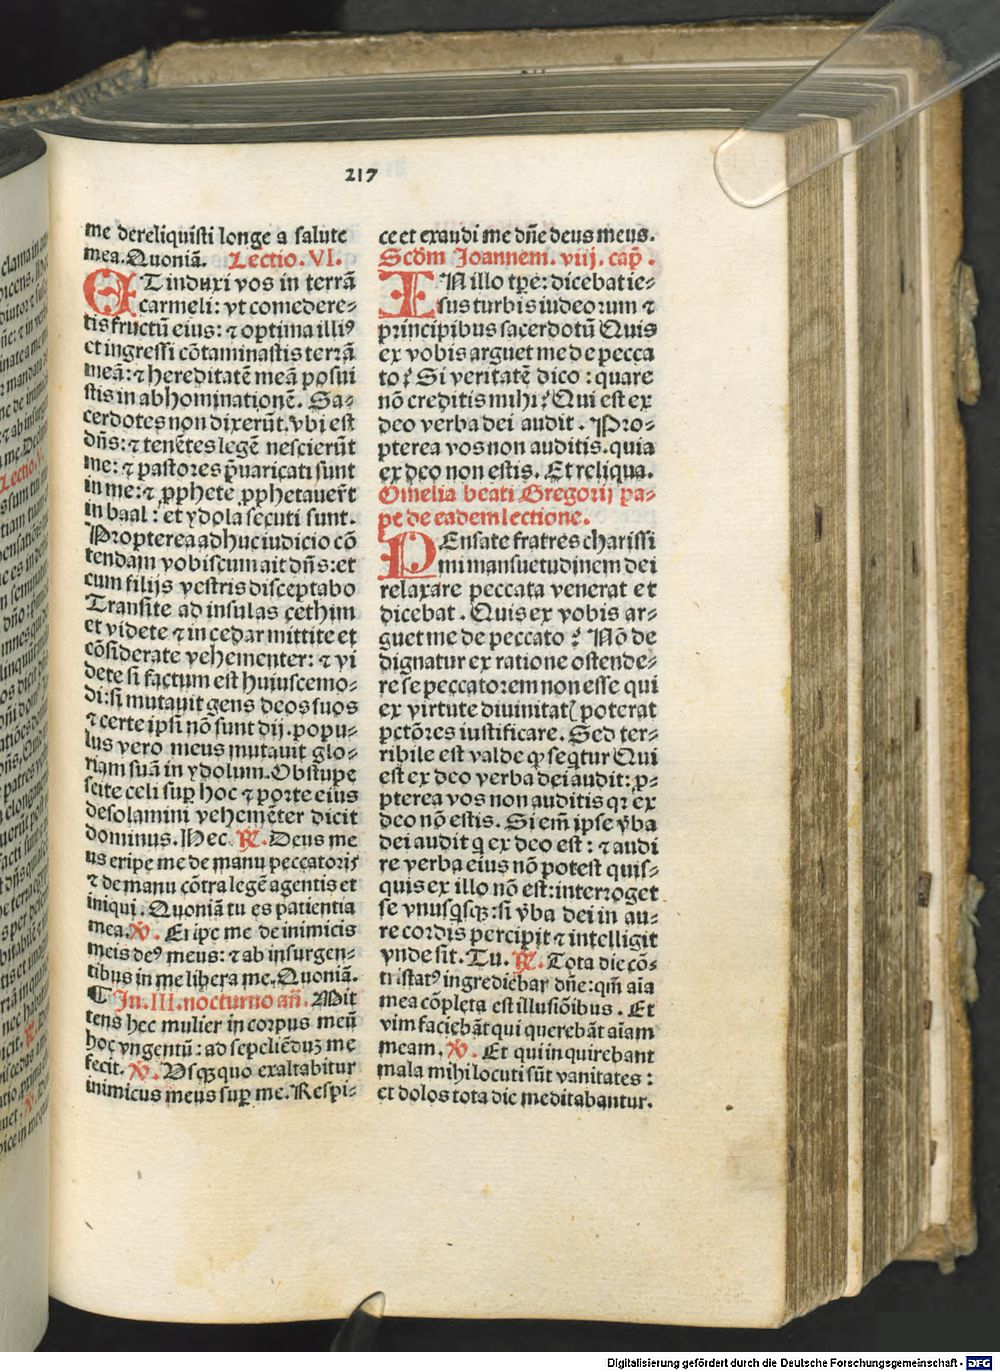 217
me dereliquisti longe a salute
mea. Quoniã. Lectio. VI.
ET induxi vos in terrã
carmeli: vt comedere⸗
tis fructũ eius: ⁊ optima illiꝰ
et ingressi cõtaminastis terrã
meã: ⁊ hereditatẽ meã posui
stis in abhominationẽ. Sa⸗
cerdotes non dixerũt. vbi est
dñs: ⁊ tenẽtes legẽ nescierũt
me: ⁊ pastores p̃uaricati sunt
in me: ⁊ ꝓphete ꝓphetauer̃t
in baal: et ydola secuti sunt.
Propterea adhuc iudicio cõ
tendam vobiscum ait dñs: et
cum filijs vestris disceptabo
Transite ad insulas cethim
et videte ⁊ in cedar mittite et
cõsiderate vehementer: ⁊ vi
dete si factum est huiuscemo⸗
di: si mutauit gens deos suos
⁊ certe ipsi nõ sunt dij. popu⸗
lus vero meus mutauit glo⸗
riam suã in ydolum. Obstupe
scite celi suꝑ hoc ⁊ porte eius
desolamini vehemẽter dicit
dominus. Hec. ℟. Deus me
us eripe me de manu peccatoris
⁊ de manu cõtra legẽ agentis et
iniqui. Quoniã tu es patientia
mea. ℣. Eripe me de inimicis
meis deꝰ meus: ⁊ ab insurgen⸗
tibus in me libera me. Quoniã.
¶ In. III. nocturno añ. Mit
tens hec mulier in corpus meũ
hoc vngentũ: ad sepeliẽduꝫ me
fecit. ℣. Vsqꝫquo exaltabitur
inimicus meus suꝑ me. Respi⸗
ce et exaudi me dñe deus meus.
Scðm Joannem. viij. cap̃.
IN illo tꝑe: dicebat ie⸗
sus turbis iudeorum ⁊
principibus sacerdotũ Quis
ex vobis arguet me de pecca
to? Si veritatẽ dico: quare
nõ creditis mihi? Qui est ex
deo verba dei audit. Pro⸗
pterea vos non auditis. quia
ex deo non estis. Et reliqua.
Omelia beati Gregorij pa⸗
pe de eadem lectione.
PEnsate fratres charissi
mi mansuetudinem dei
relaxare peccata venerat et
dicebat. Quis ex vobis ar⸗
guet me de peccato? Nõ de
dignatur ex ratione ostende⸗
re se peccatorem non esse qui
ex virtute diuinitatꝭ poterat
pctõres iustificare. Sed ter⸗
ribile est valde qꝫ seqtur Qui
est ex deo verba dei audit: ꝓ⸗
pterea vos non auditis qꝛ ex
deo nõ estis. Si em̃ ipse v̾ba
dei audit q̃ ex deo est: ⁊ audi
re verba eius nõ potest quis⸗
quis ex illo nõ est: interroget
se vnusqsqꝫ: si v̾ba dei in au⸗
re cordis percipit ⁊ intelligit
vnde sit. Tu. ℟. Tota die cõ⸗
tristatꝰ ingrediebar dñe: qm̃ aĩa
mea cõpleta est illusiõibus. Et
vim faciebãt qui querebãt aĩam
meam. ℣. Et qui inquirebant
mala mihi locuti sũt vanitates:
et dolos tota die meditabantur.
Digitalisierung gefördert durch die Deutsche Forschungsgemeinschaft - DFG